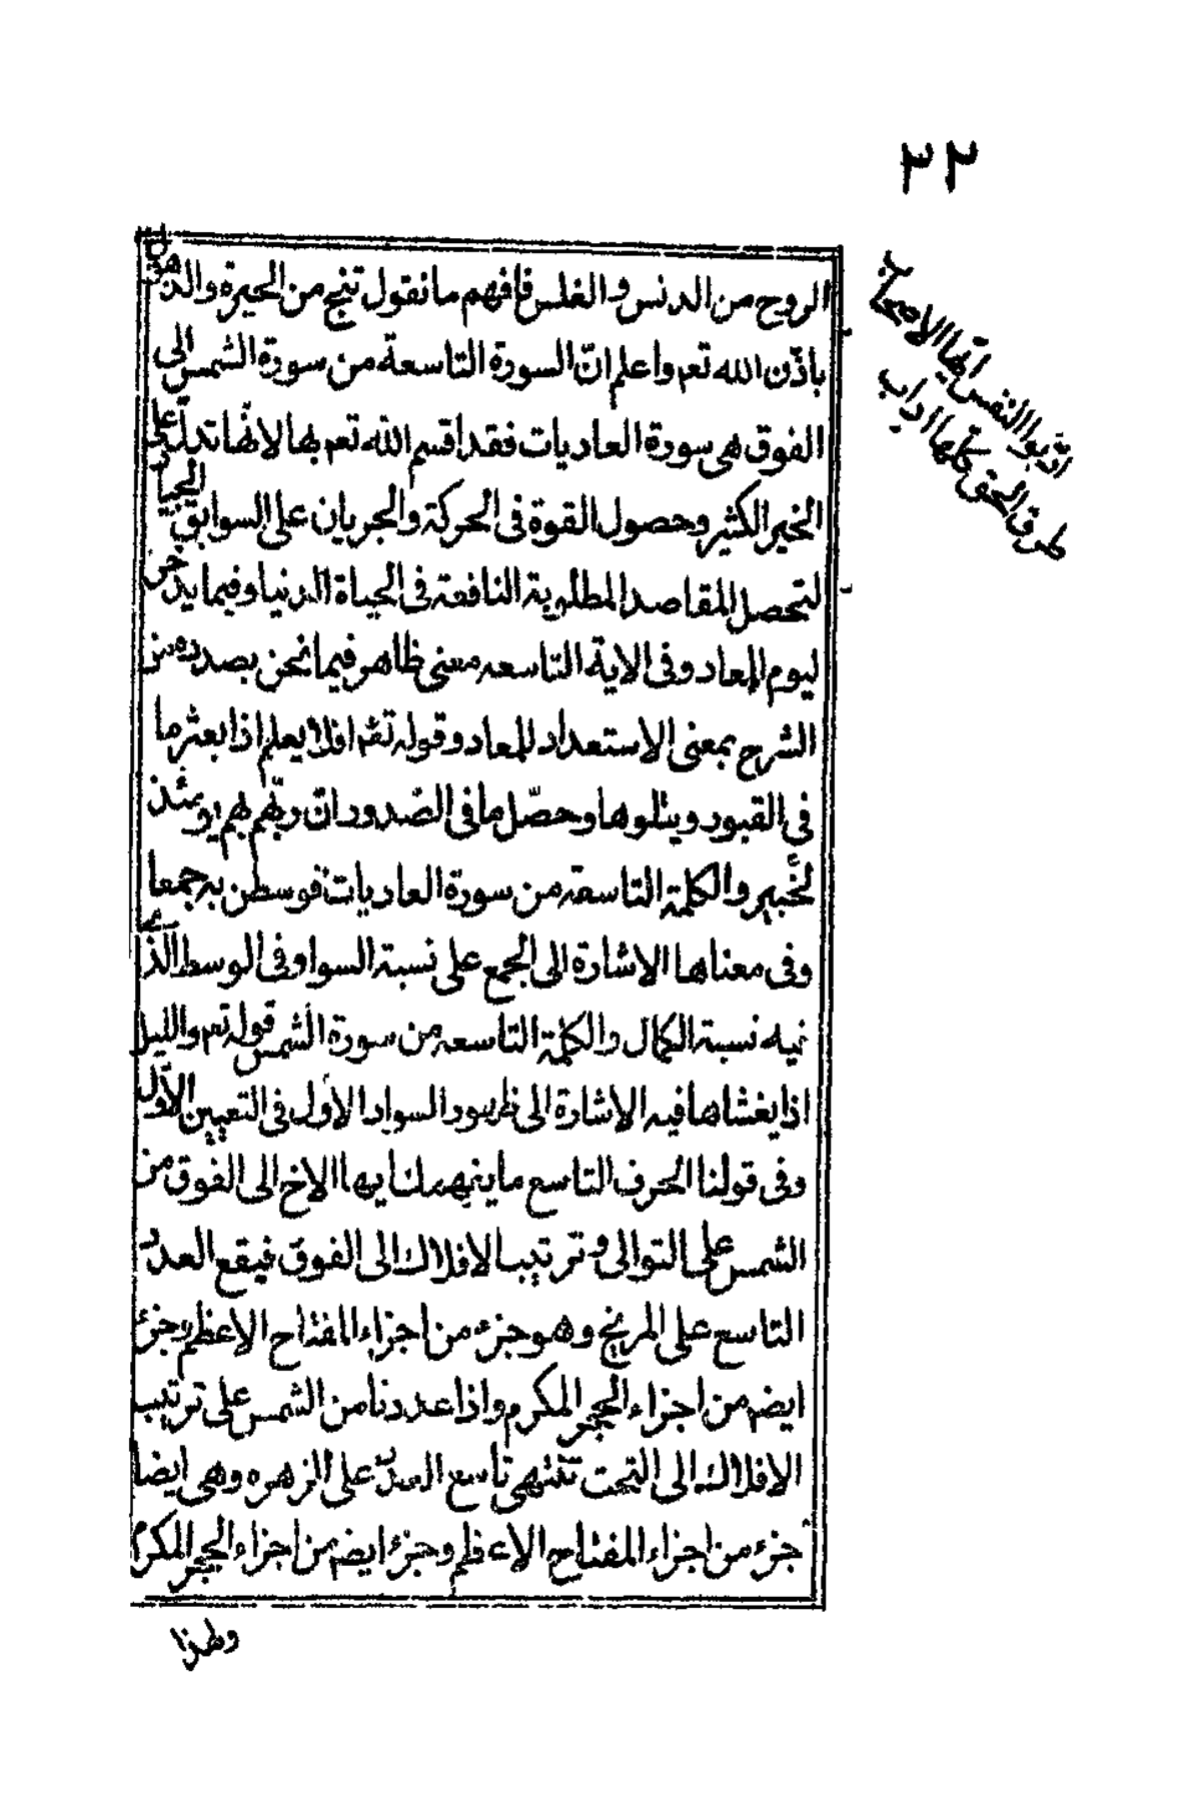 ٢٢
ادّبوا النفس ايّها الاصحاب
طرق الحق كلها اداب
الروح من الدنس والغلس فافهم ما نقول تنج من الحيرة والذهول
باذن الله تعم واعلم انّ السورة التاسعة من سورة الشمس الى
الفوق هى سورة العاديات فقد اقسم الله تعم بها لانّها تدلّ على
الخير الكثير وحصول القوة فى الحركة والجريان على السوابق الجياد
لتحصل المقاصد المطلوبة النافعة فى الحياة الدنيا وفيما يدخر
ليوم المعاد وفى الاية التاسعه معنى ظاهر فيما نحن بصدده من
الشرح بمعنى الاستعداد للمعاد وقوله تعم افلا يعلم اذا بعثر ما
فى القبور ويتلوها وحصّل ما فى الصّدور انّ ربّهم بهم يومئذ
لخبير والكلمة التاسعة من سورة العاديات فوسطن به جمعا
وفى معناها الاشارة الى الجمع على نسبة السوا وفى الوسط الّذى
فيه نسبة الكمال والكلمة التاسعه من سورة الشمس قوله تعم والليل
اذا يغشاها فيه الاشارة الى ظهور السواد الاول فى التعيين الاوّل
وفى قولنا الحرف التاسع ما ينبهك ايها الاخ الى الفوق من
الشمس على التوالى وترتيب الافلاك الى الفوق فيقع العدد
التاسع على المريخ وهو جزء من اجزاء المفتاح الاعظم وجزء
ايضم من اجزاء الحجر المكرم واذا عددنا من الشمس على ترتيب
الافلاك الى التحت تنتهى تاسع العدد على الزهره وهى ايضا
جزء من اجزاء المفتاح الاعظم وجزء ايضم من اجزاء الحجر المكرم
وطذا